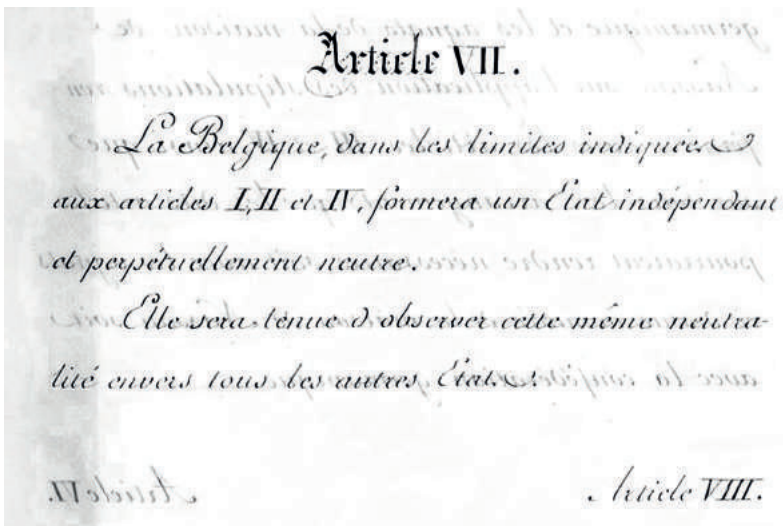 Article VII.
La Belgique, dans les limites indiquées
aux articles I, II et IV, formera un Etat indépendant
et perpétuellement neutre.
Elle sera tenue d'observer cette même neutra-
lité envers tous les autres Etats.
Article VIII.